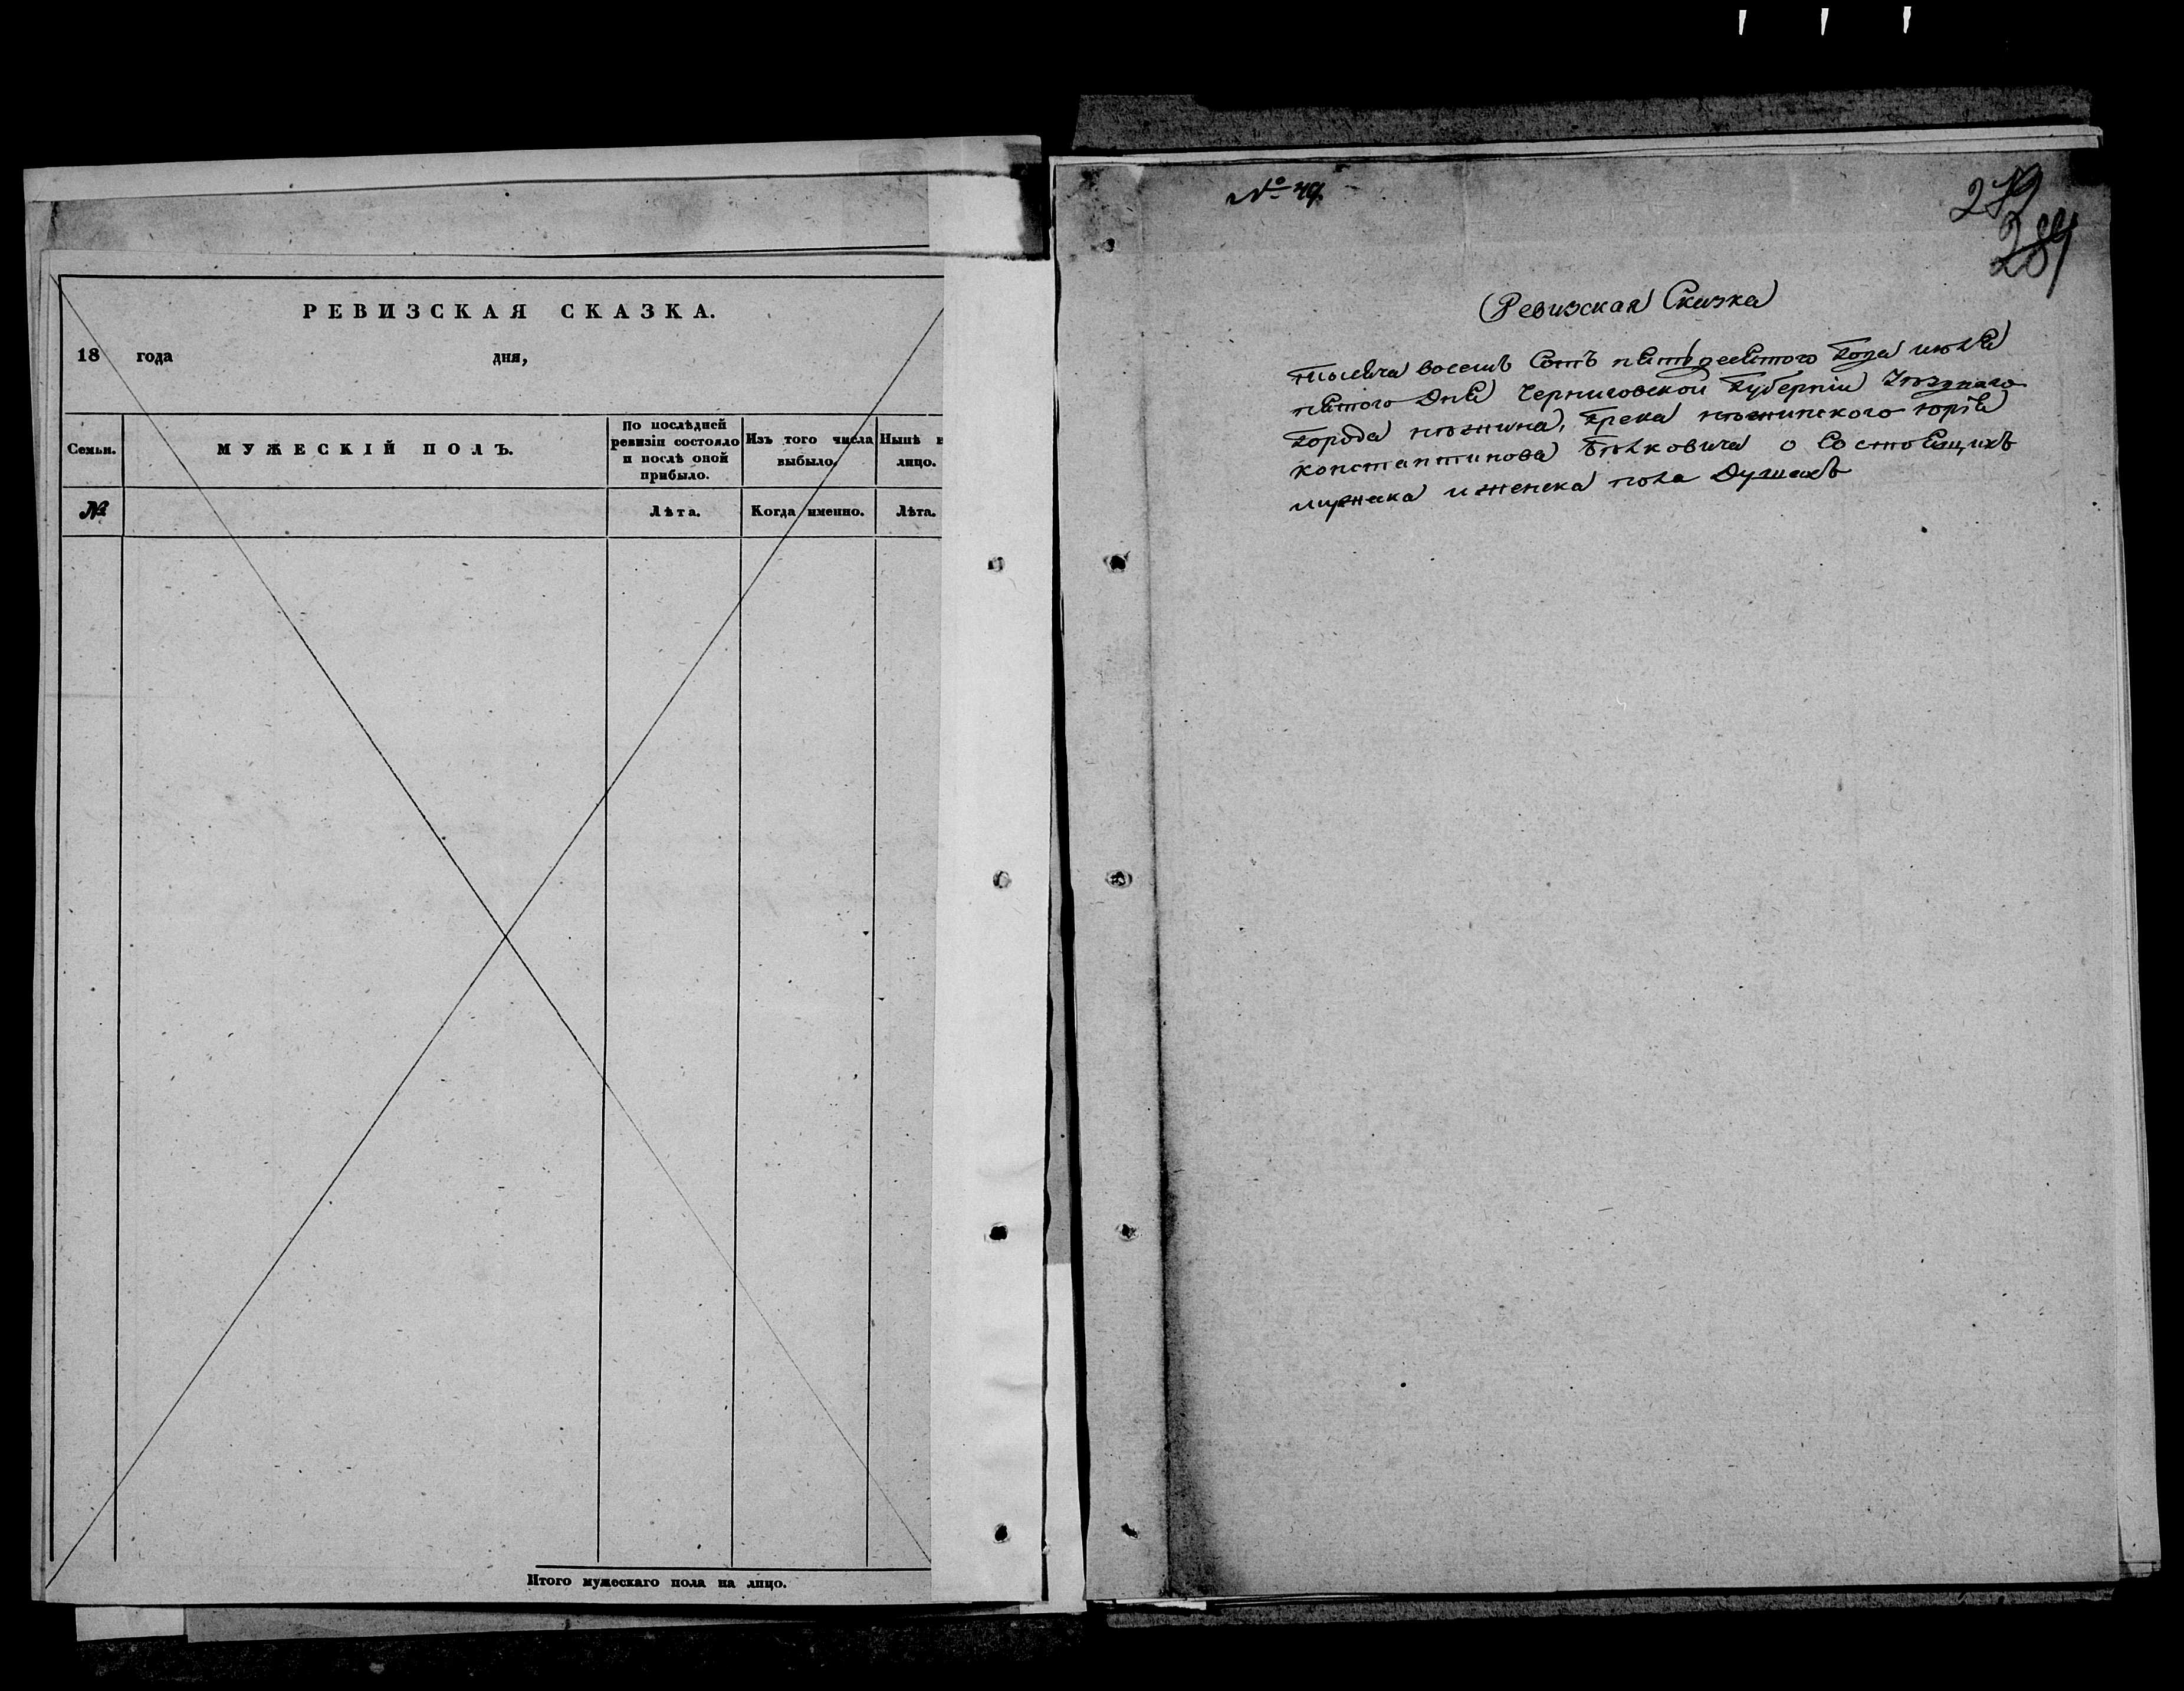 РЕВИЗСКАЯ СКАЗКА.
18 года дня,
Семьи. МУЖЕСКІЙ ПОЛЪ. По послѣдней ревизіи состояло и послѣ оной прибыло. Изъ того числа выбыло. Нынѣ н лицо.
№ Лѣта. Когда именно. Лѣта.
Итого мужескаго пола на лицо.
№ 49.
279
289
Ревизская Сказка
тысяча восемь Сотъ пятдесятого Года июля
пятого Дня Черниговской Губерніи Уѣзднаго
Города нѣжина, Грека нѣжинского юрія
константинова Бѣлковича о Состоящихъ
мужска и женска пола Душахъ